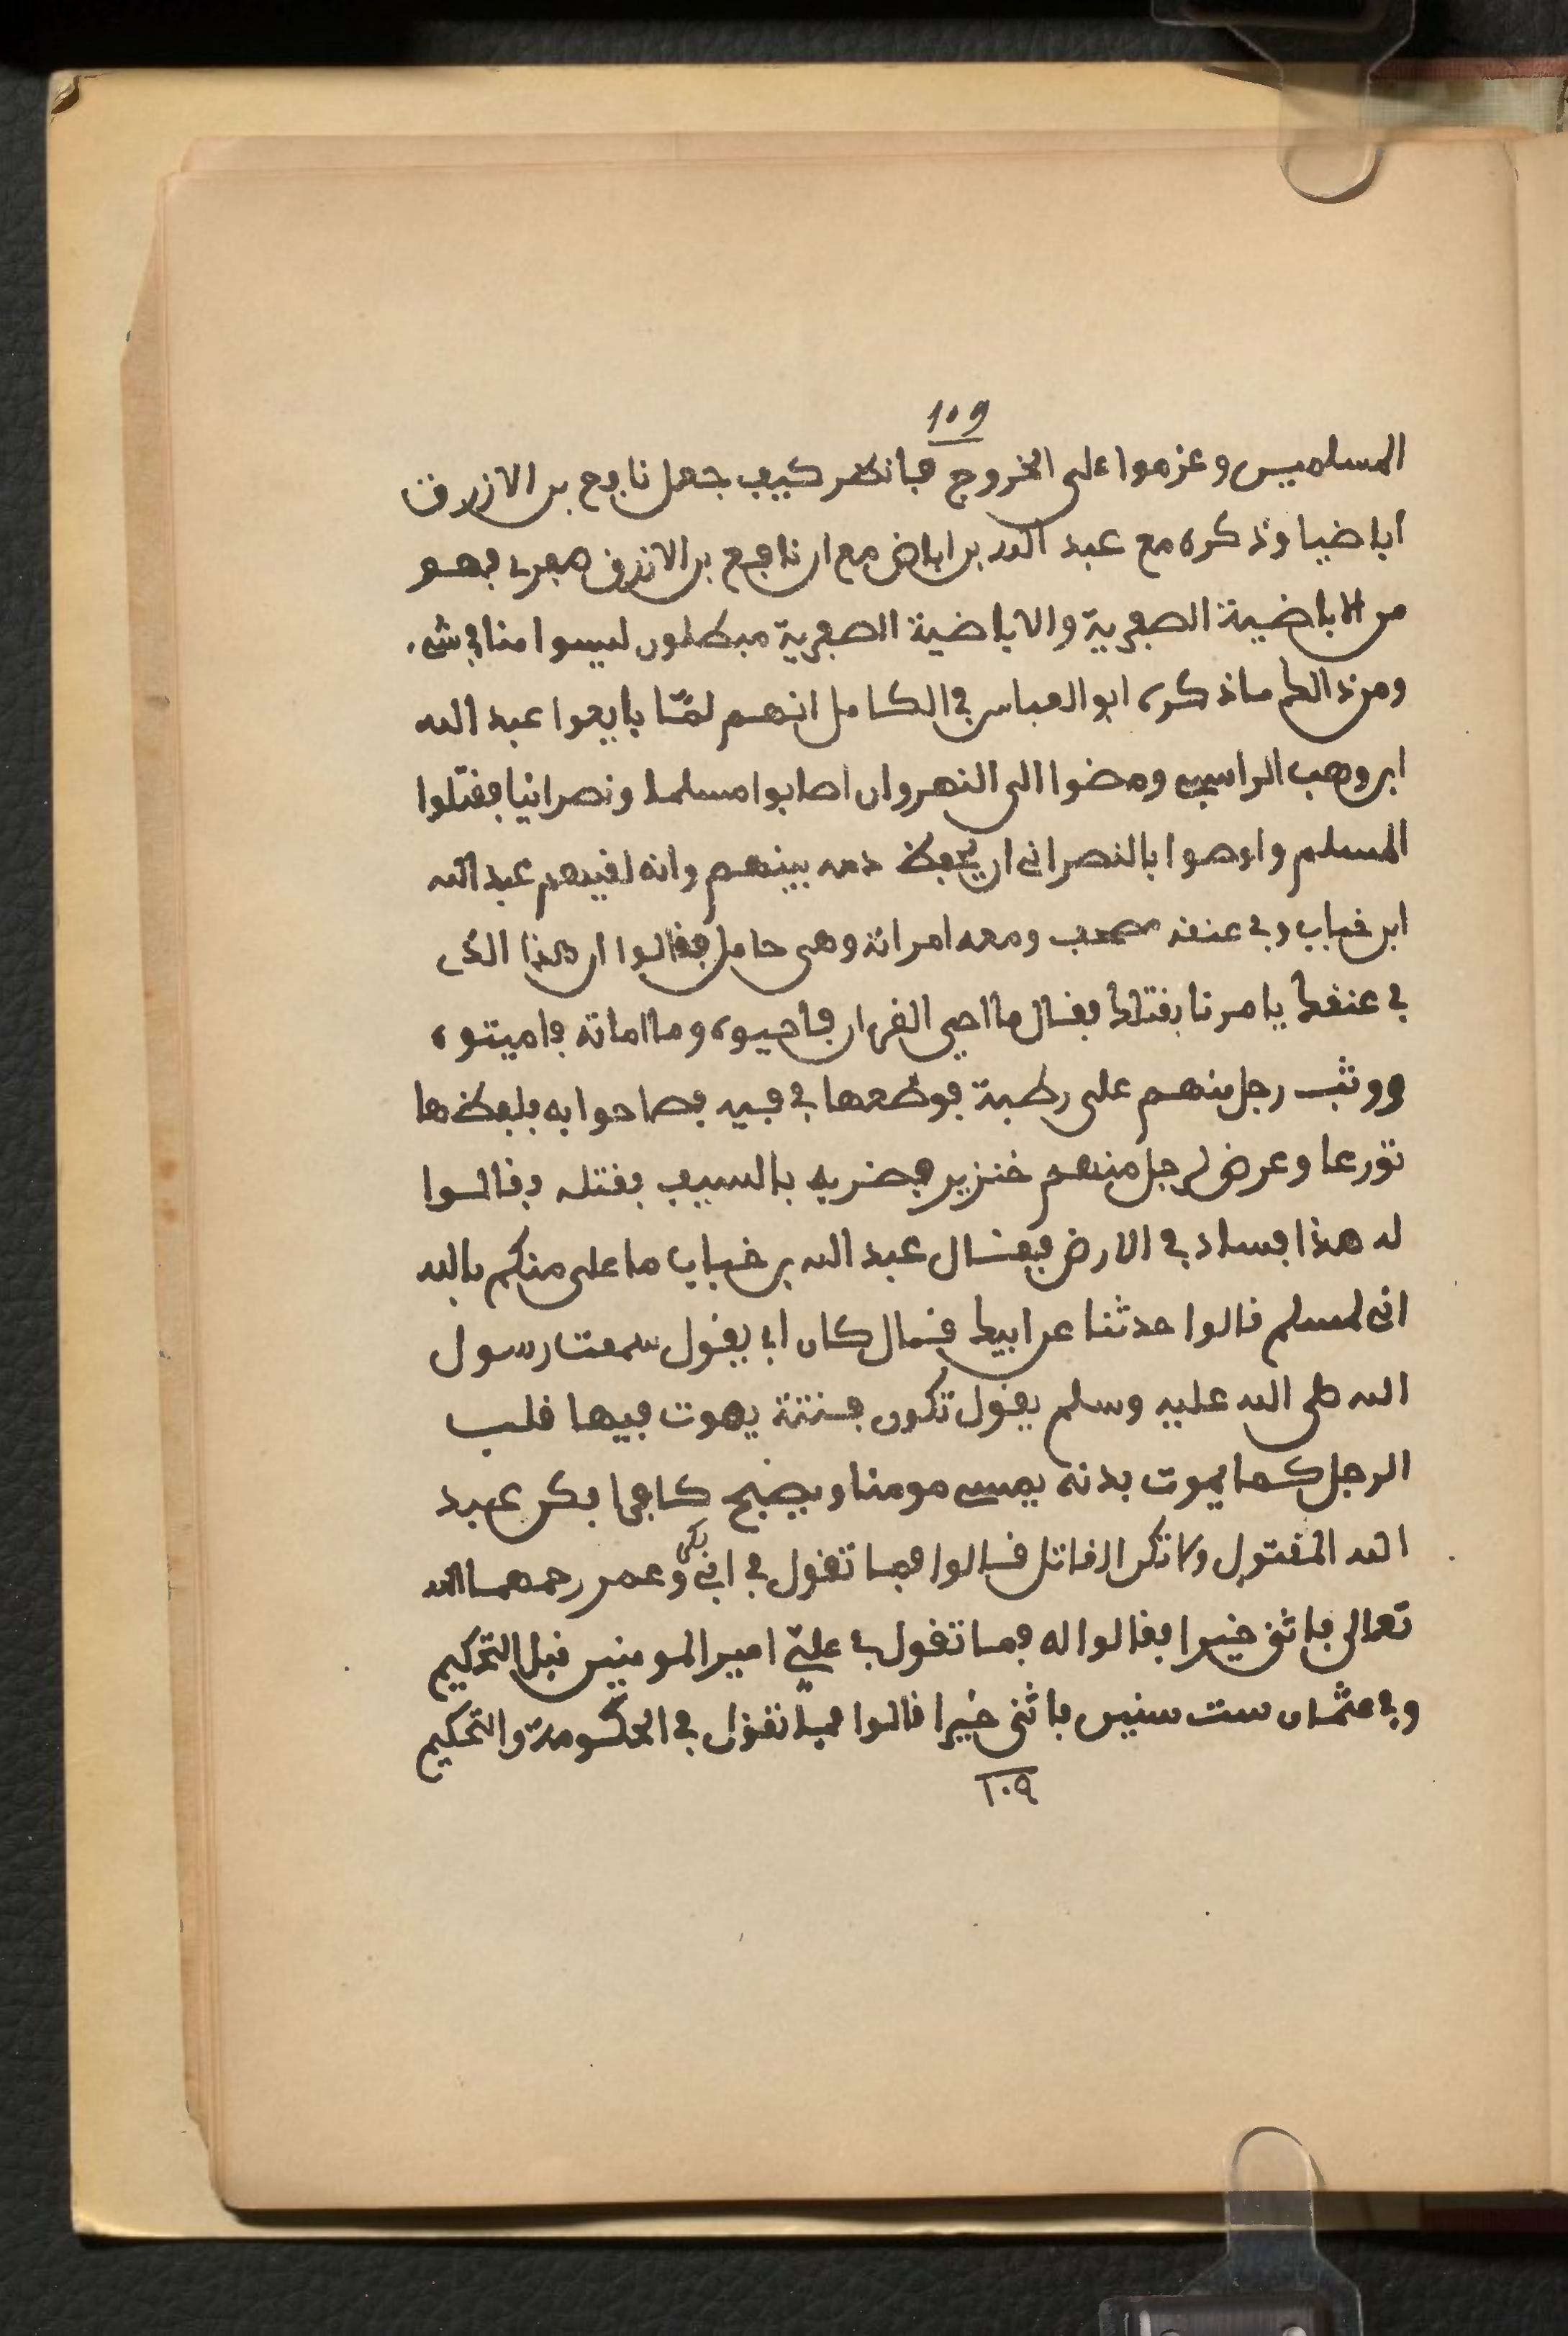 109
المسلمين وعزموا على الخروج فانظر كيف جعل نافع بن الازرق
اباضيا وذكره مع عبد الله بن اباض مع ان نافع بن الازرق صفري فهو
من الاباضية الصفرية والاباضية الصفرية مبطلون ليسوا منا في شيء
ومن ذالك ما ذكره ابو العباس في الكامل انهم لمّا بايعوا عبد الله
ابن وهب الراسبي ومضوا الى النهروان اصابوا مسلما ونصرانيا فقتلوا
المسلم واوصوا بالنصراني ان يحفظ دمه بينهم وانه لقيهم عبد الله
ابن خباب وفي عنقه مصحف ومعه امراته وهي حامل فقالوا ان هذا الذي
في عنقك يامرنا بقتلك فقال ما احيى القرءان فاحيوه وما اماته فاميتوه
ووثب رجل منهم على رطبة فوضعها في فيه فصاحوا به فلفظها
تورعا وعرض لرجل منهم خنزير فضربه بالسيف فقتله فقالوا
له هذا فساد في الارض فقال عبد الله بن خباب ما على منكم بالله
اني لمسلم قالوا حدثنا عن ابيك فقال كان ابي يقول سمعت رسول
الله صلى الله عليه وسلم يقول تكون فتنة يموت فيها قلب
الرجل كما يموت بدنه يمسي مومنا ويصبح كافرا فكن عبد
الله المقتول ولا تكن القاتل قالوا فما تقول في ابي بكر وعمر رحمهما الله
تعالى فاثنى خيرا فقالوا له فما تقول في عليّ امير المومنين قبل التحكيم
وفي عثمان ست سنين فاثنى خيرا قالوا فما تقول في الحكومة والتحكيم
١٠٩